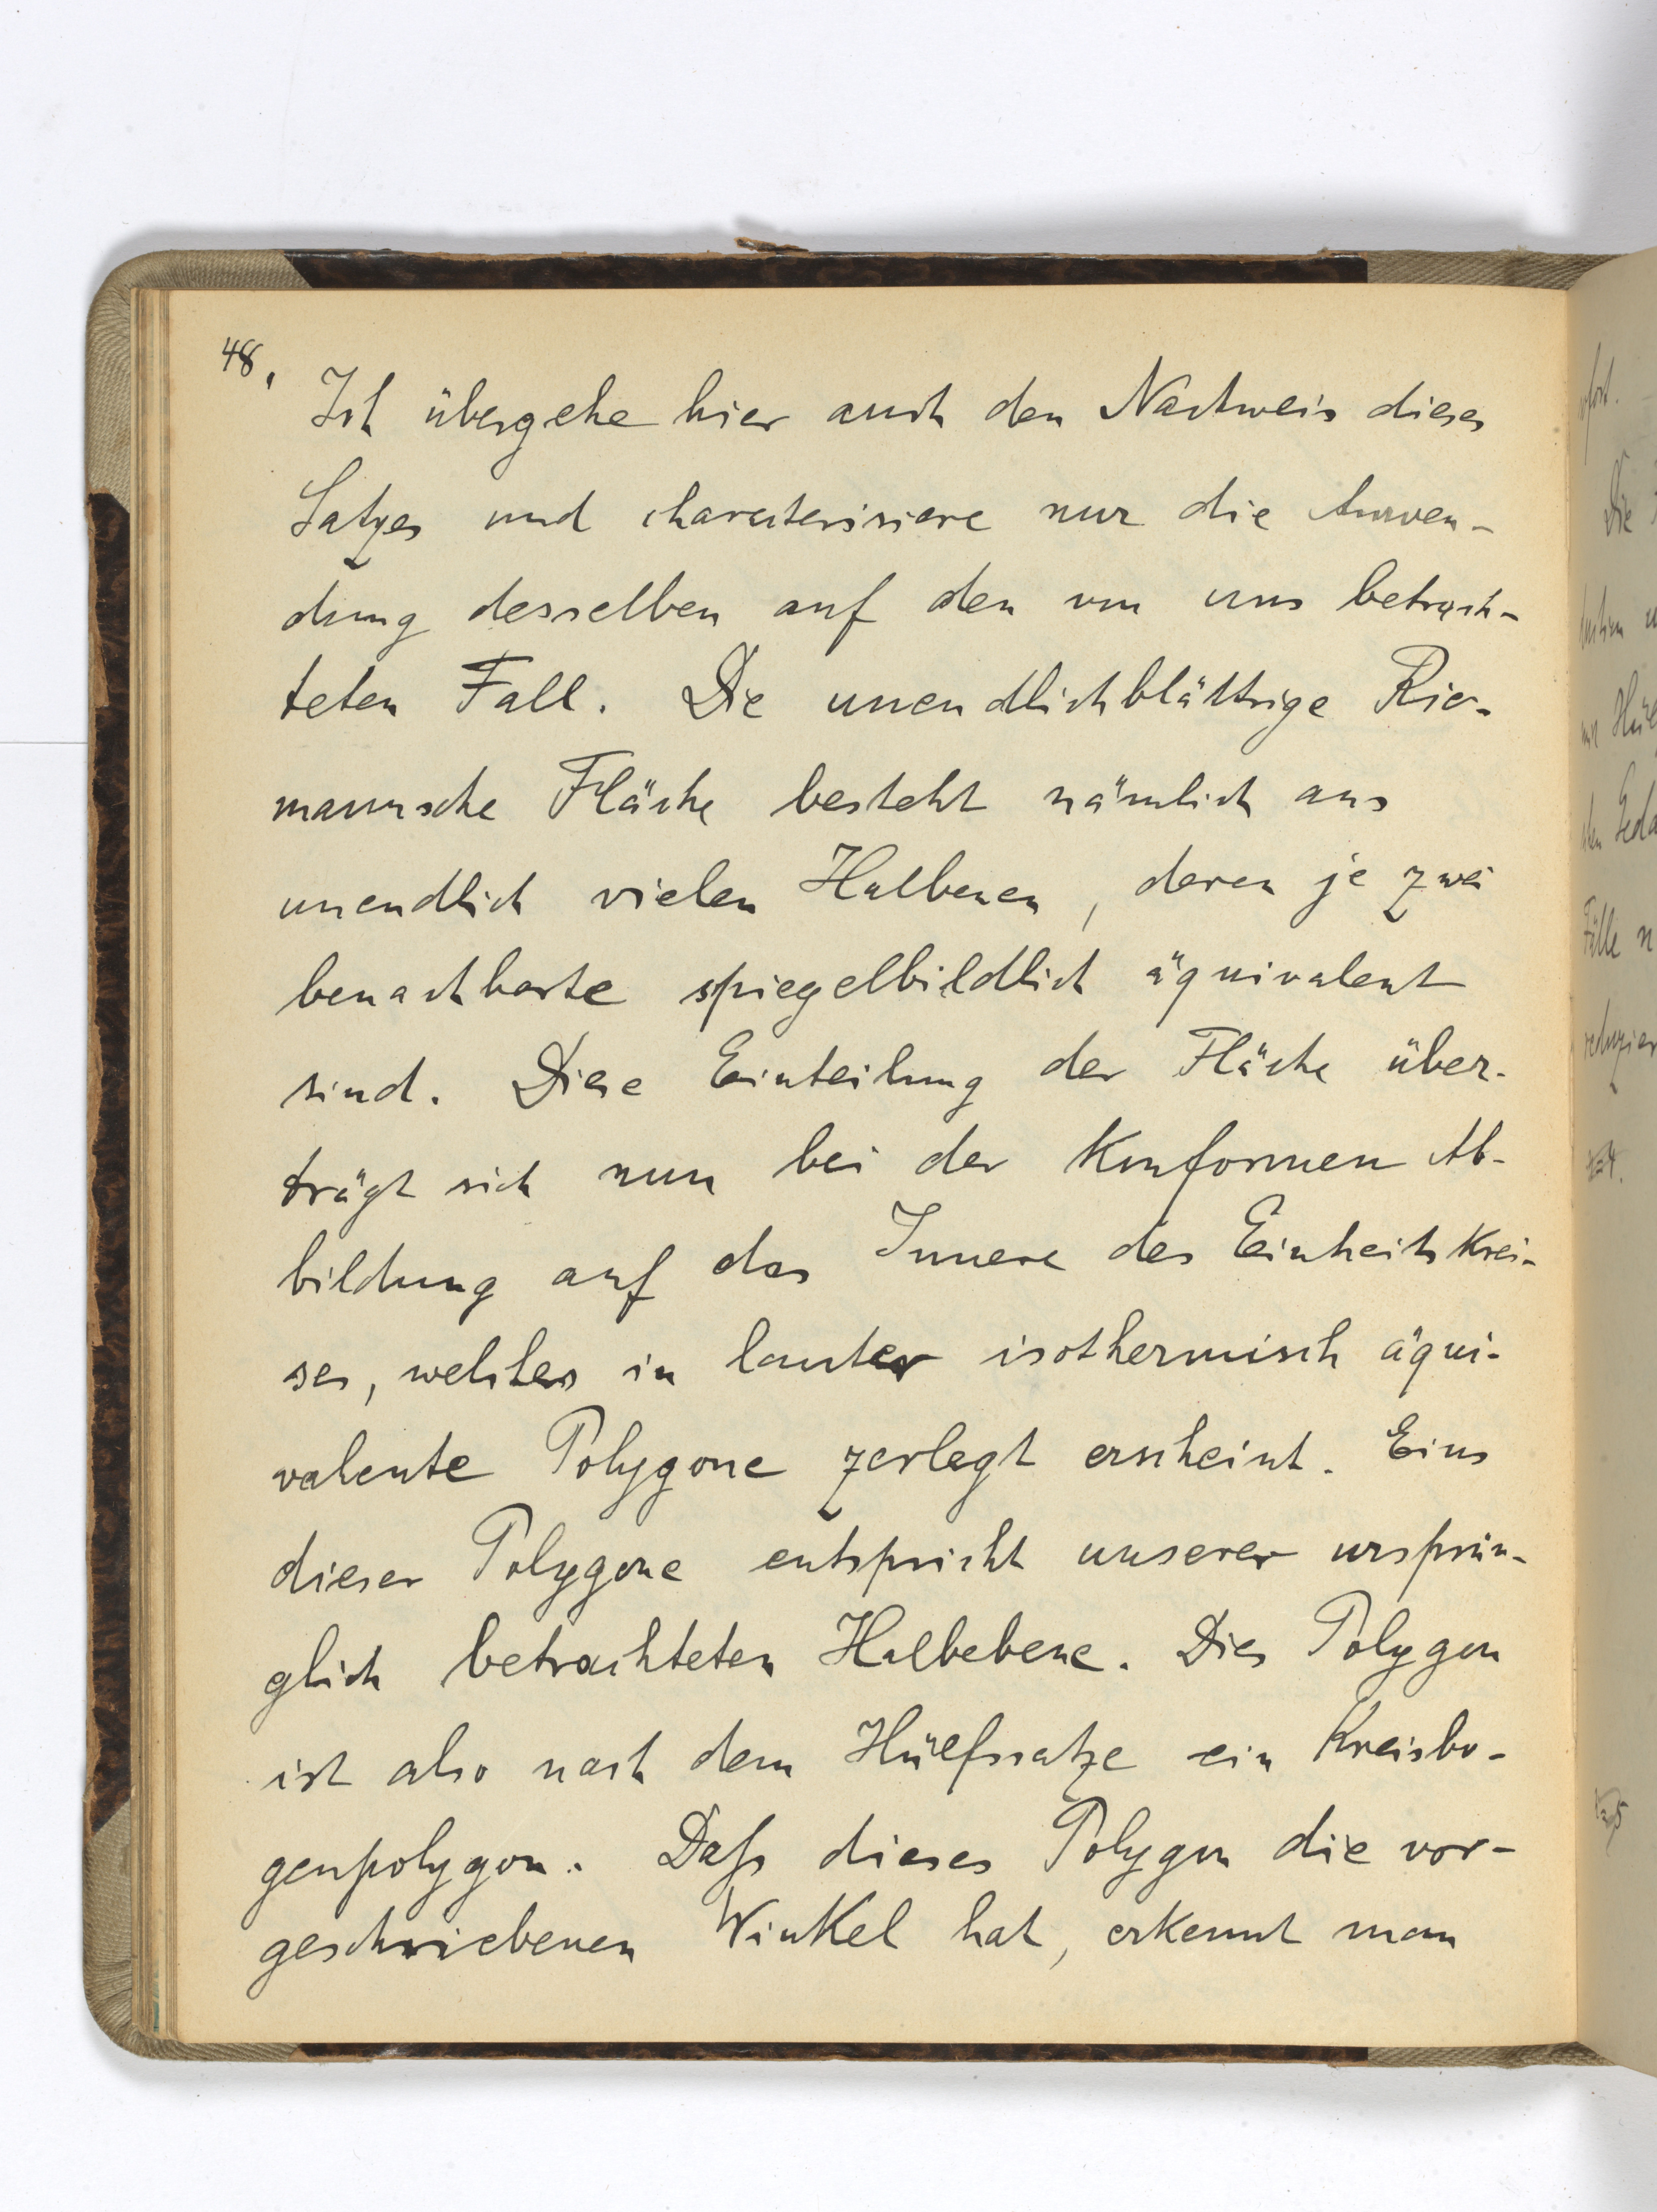 48.
Ich übergehe hier auch den Nachweis dieses
Satzes und characterisiere nur die Anwen-
dung desselben auf den von uns betrach-
teten Fall. Die unendlichblättrige Rie-
mannsche Fläche besteht nämlich aus
unendlich vielen Halbenen, deren je zwei
benachbarte spiegelbildlich äquivalent
sind. Diese Einteilung der Fläche über-
trägt sich nun bei der Konformen Ab-
bildung auf das Innere des Einheitskrei-
ses, welches in lauter isothermisch äqui-
valente Polygone zerlegt erscheint. Eins
dieser Polygone entspricht unserer ursprün-
glich betrachteten Halbebene. Dies Polygon
ist also nach dem Hülfssatze ein Kreisbo-
genpolygon. Daß dieses Polygon die vor-
geschriebenen Winkel hat, erkennt man